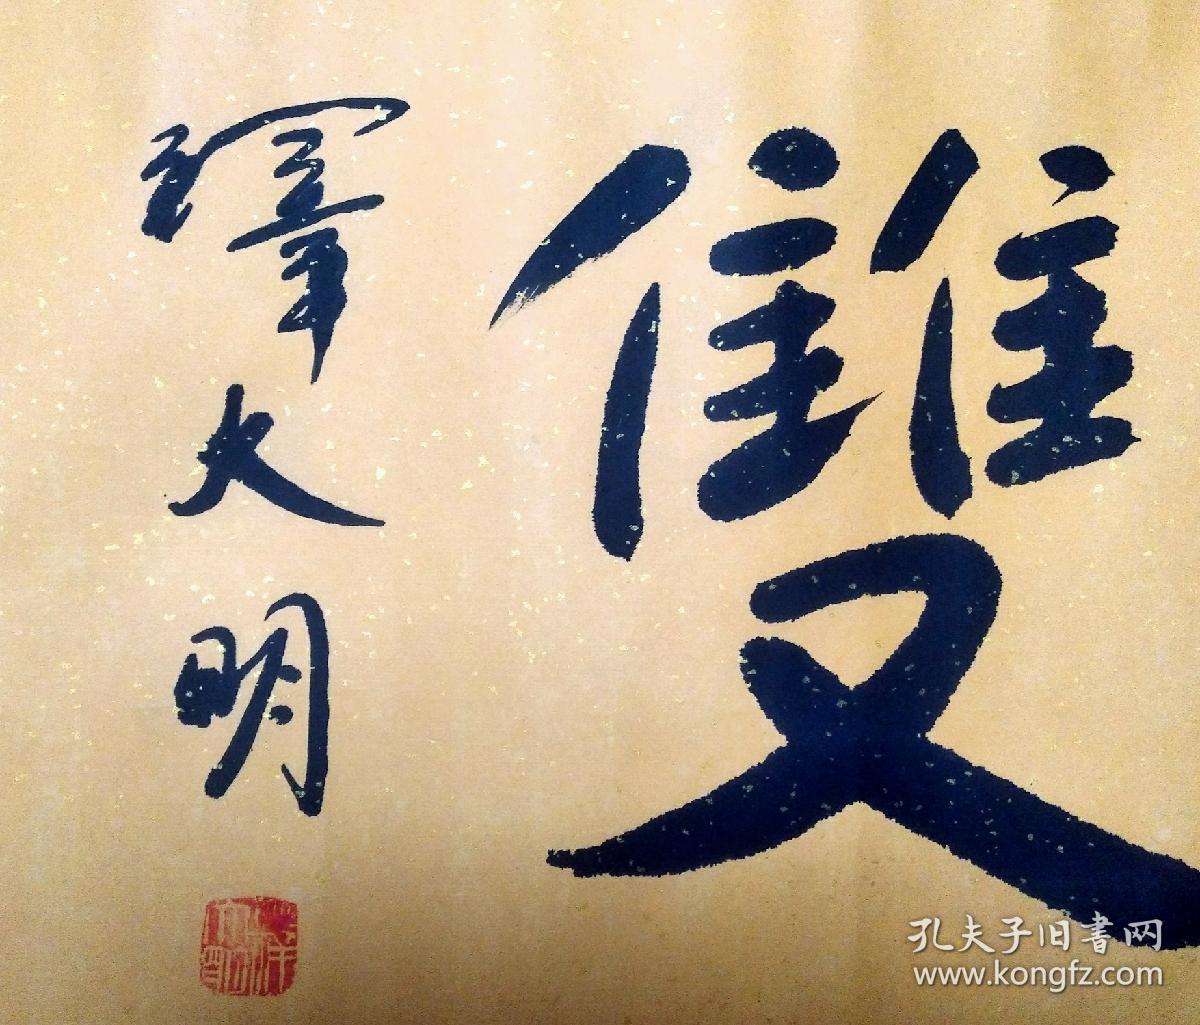 雙
釋大明
孔夫子旧書网
www.kongfz.com